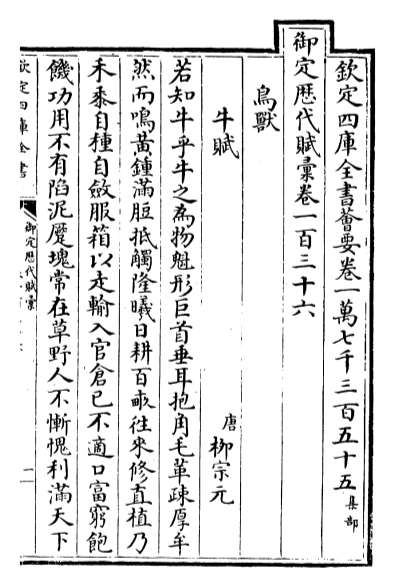 欽定四庫全書薈要卷一萬七千三百五十五 集部
御定歴代賦彙卷一百三十六
鳥獸
牛賦
唐 柳宗元
若知牛乎牛之為物魁形巨首垂耳抱角毛革疎厚牟
然而鳴黃鍾滿脰抵觸隆曦日耕百畝往來修直植乃
禾黍自種自斂服箱以走輸入官倉已不適口富窮飽
饑功用不有陷泥蹷塊常在草野人不慚愧利滿天下
欽定四庫全書
御定歴代賦彙